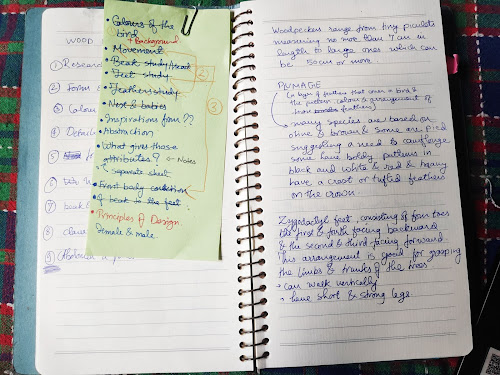 WOOD
① Research
② Form
③ Colou
④ Detail
⑤
⑥
⑦ beak
⑧ claw
⑨ Abstract
• Colours & the bird
+ Background
• Movement
• Beak study/head
• Feet study
• Feather study
• Nest & babies
• Inspirations from ??
• Abstraction
• What gives those attributes? → Notes
( separate sheet
• First body
of beak to the feet.
• Principles of Design
Female & male.
2
3
Woodpeckers range from tiny piculets
measuring no more than 7 cm in
length to large ones which can
be 50cm or more.
PLUMAGE
(a layer of feathers that cover a bird &
the pattern colour & arrangement of
those feathers)
→ many species are based on
olive & brown & some are pied
suggesting a need to camoflage
some have boldly patterns in
black and white & red & many
have a crest or tufted feathers
on the crown.
Zygodactyl feet, consisting of four toes
the first & forth facing backward
& the second & third facing forward.
This arrangement is good for grasping
the limbs & trunks of the trees
→ can walk vertically
→ have short & strong legs.